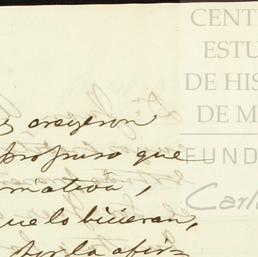 CENT
ESTU
DE HIS
DE M
FUND
Carl
creyeron
propuso que
mativa,
que lo hicieran,
por la afir=